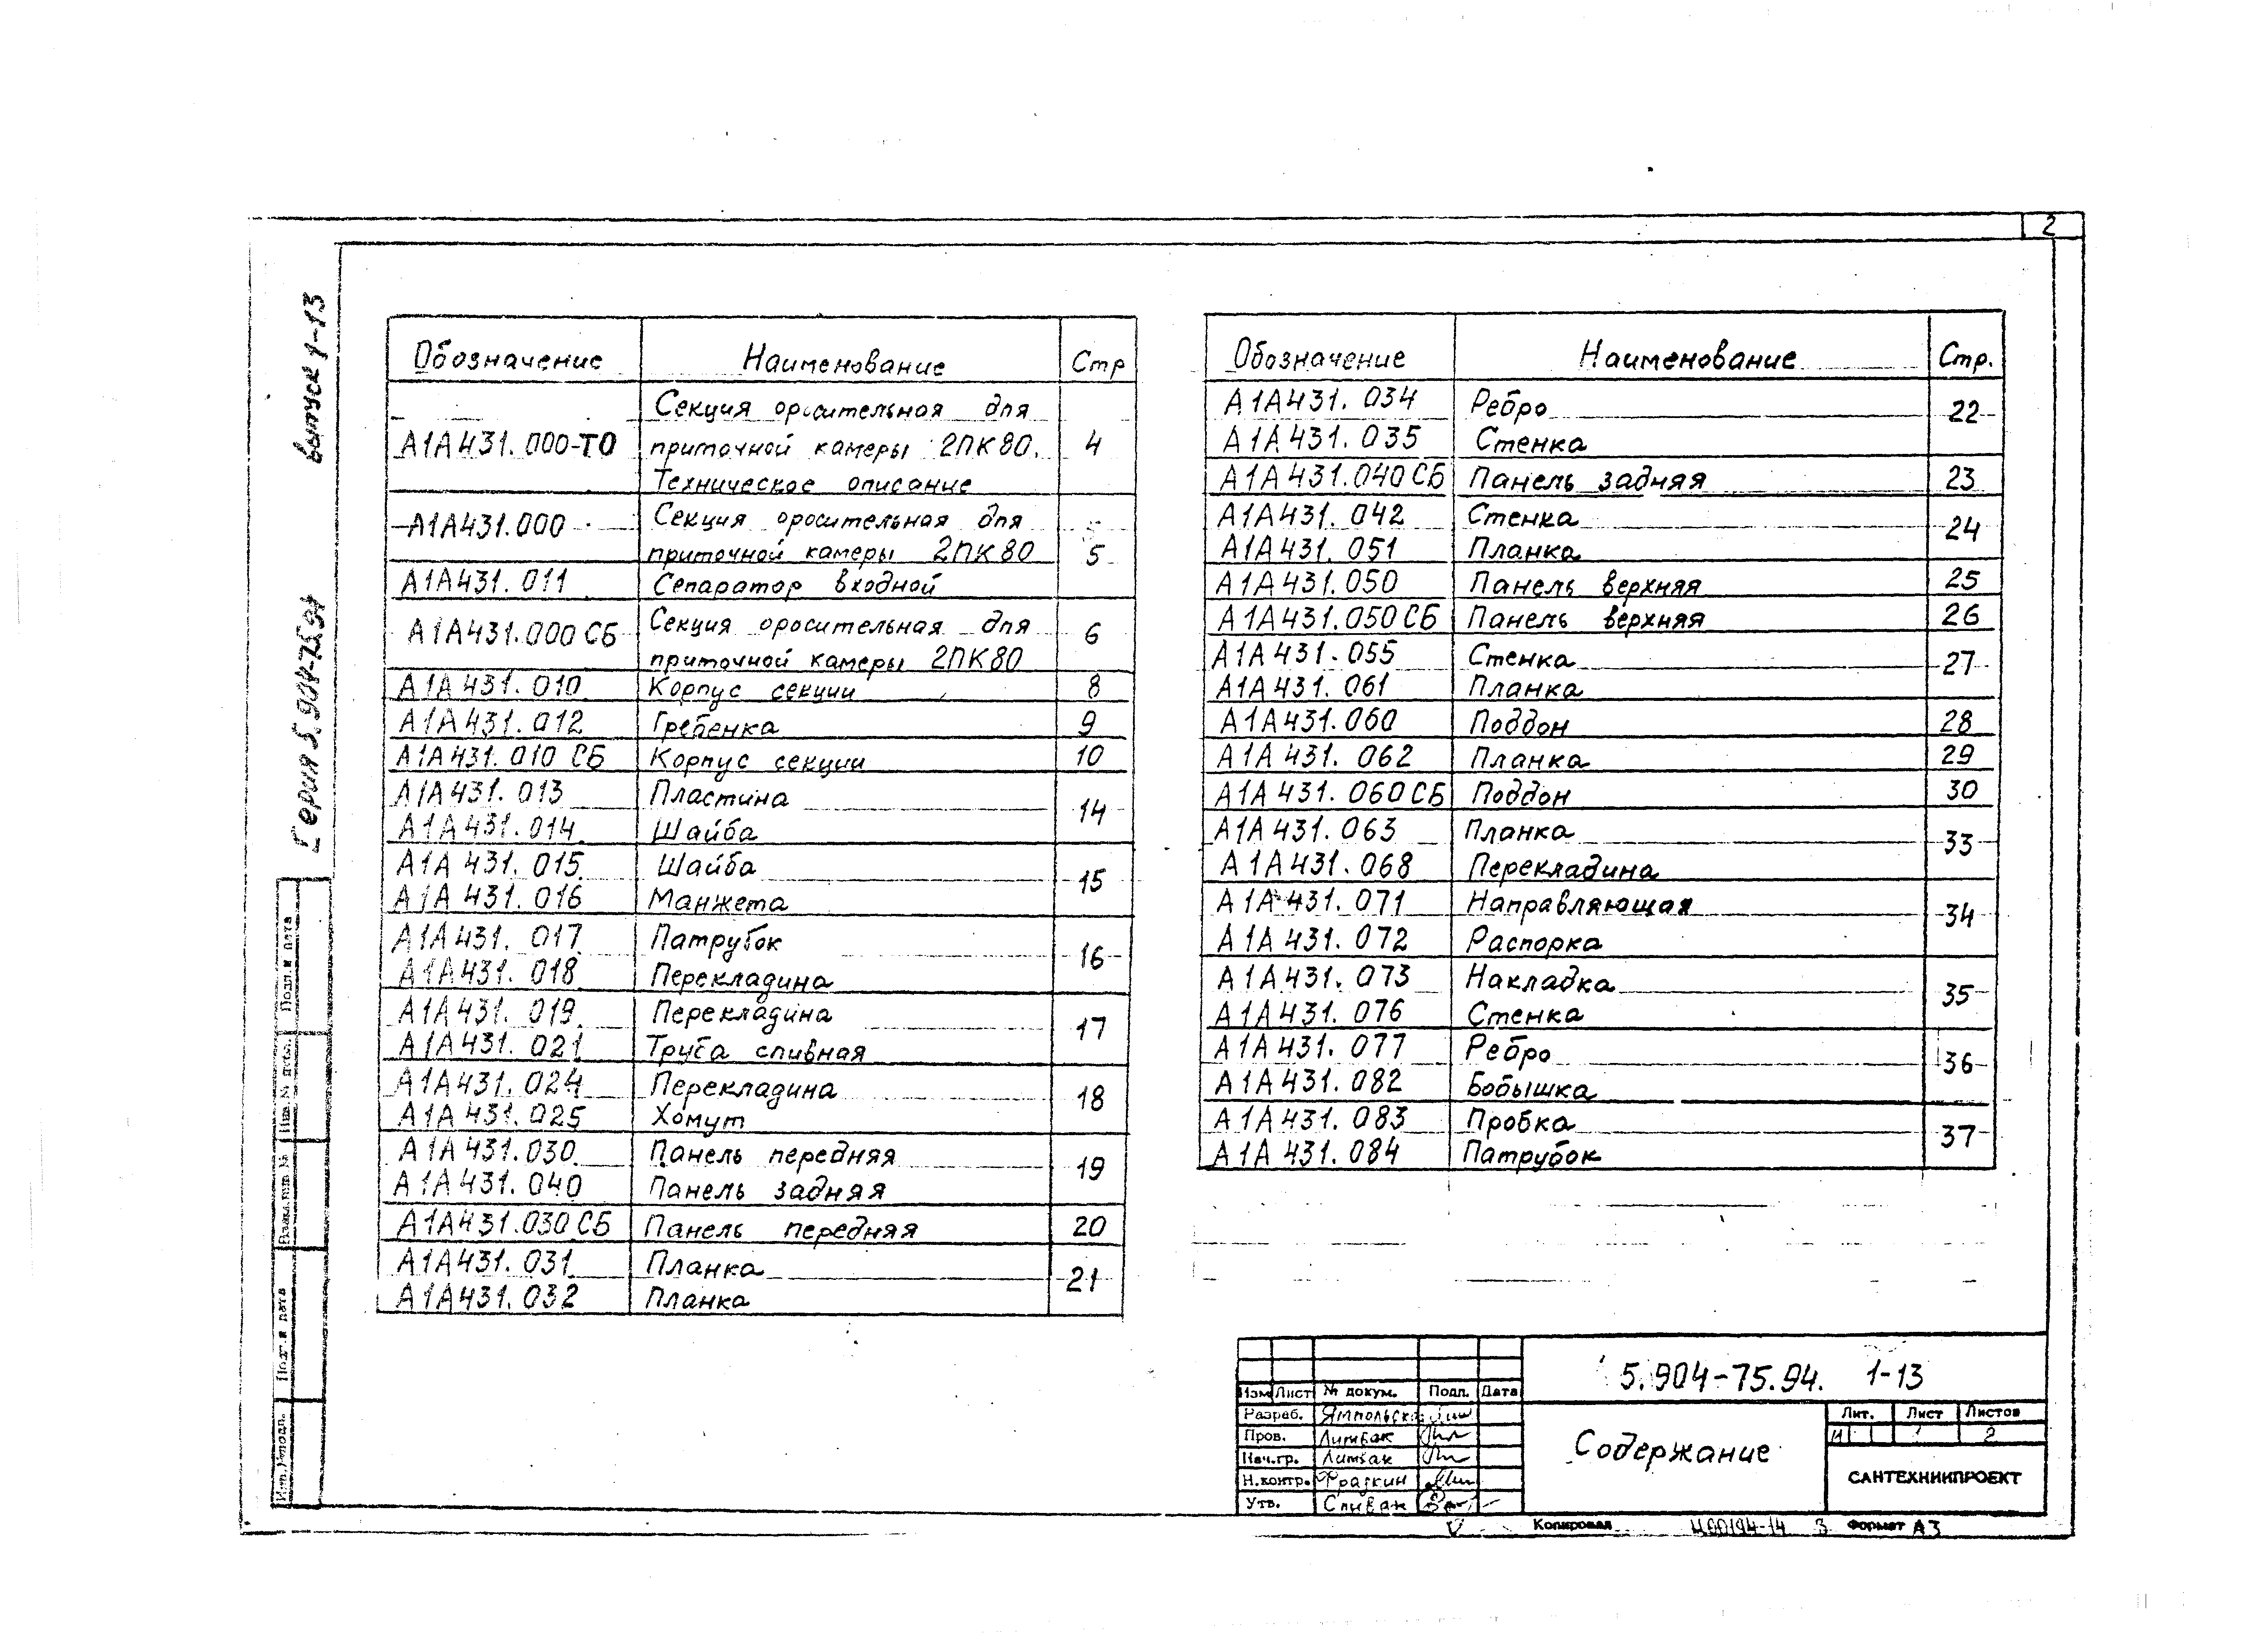 2
Серия 5.904-75.94 выпуск 1-13
Обозначение Наименование Стр
А1А431.000-ТО Секция оросительная для
приточной камеры 2ПК80. 4
Техническое описание
А1А431.000 Секция оросительная для
приточной камеры 2ПК80 5
А1А431.011 Сепаратор входной
А1А431.000 СБ Секция оросительная для 6
приточной камеры 2ПК80
А1А431.010 Корпус секции 8
А1А431.012 Гребенка 9
А1А431.010 СБ Корпус секции 10
А1А431.013 Пластина 14
А1А431.014 Шайба
А1А431.015 Шайба 15
А1А431.016 Манжета
А1А431.017 Патрубок 16
А1А431.018 Перекладина
А1А431.019 Перекладина 17
А1А431.021 Труба сливная
А1А431.024 Перекладина 18
А1А431.025 Хомут
А1А431.030 Панель передняя 19
А1А431.040 Панель задняя
А1А431.030 СБ Панель передняя 20
А1А431.031 Планка 21
А1А431.032 Планка
Обозначение Наименование Стр.
А1А431.034 Ребро 22
А1А431.035 Стенка
А1А431.040 СБ Панель задняя 23
А1А431.042 Стенка 24
А1А431.051 Планка
А1А431.050 Панель верхняя 25
А1А431.050 СБ Панель верхняя 26
А1А431.055 Стенка 27
А1А431.061 Планка
А1А431.060 Поддон 28
А1А431.062 Планка 29
А1А431.060 СБ Поддон 30
А1А431.063 Планка 33
А1А431.068 Перекладина
А1А431.071 Направляющая 34
А1А431.072 Распорка
А1А431.073 Накладка 35
А1А431.076 Стенка
А1А431.077 Ребро 36
А1А431.082 Бобышка
А1А431.083 Пробка 37
А1А431.084 Патрубок
Подп. и дата
Инв. № дубл.
Взам. инв. №
Подп. и дата
Инв. № подл.
5.904-75.94. 1-13
Изм Лист № докум. Подп. Дата
Разраб.
Пров. Литвак
Нач.гр. Литвак
Н.контр. Фрадкин
Утв. Спивак
Содержание
Лит. Лист Листов
И 1 2
САНТЕХНИИПРОЕКТ
Копировал Ц00194-14 3 Формат А3